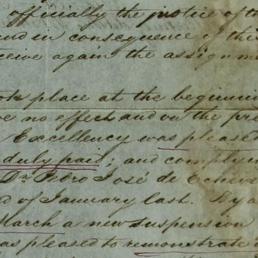 officially the justice of th
and in consequence of the
ceive again the assignme
ok place at the beginnin
ve no effect and on the pre
Excellency was please
duly paid; and comply
Dn Pedro José de Echeve
d of January last. By a
March a new suspension
as pleased to remonstrate